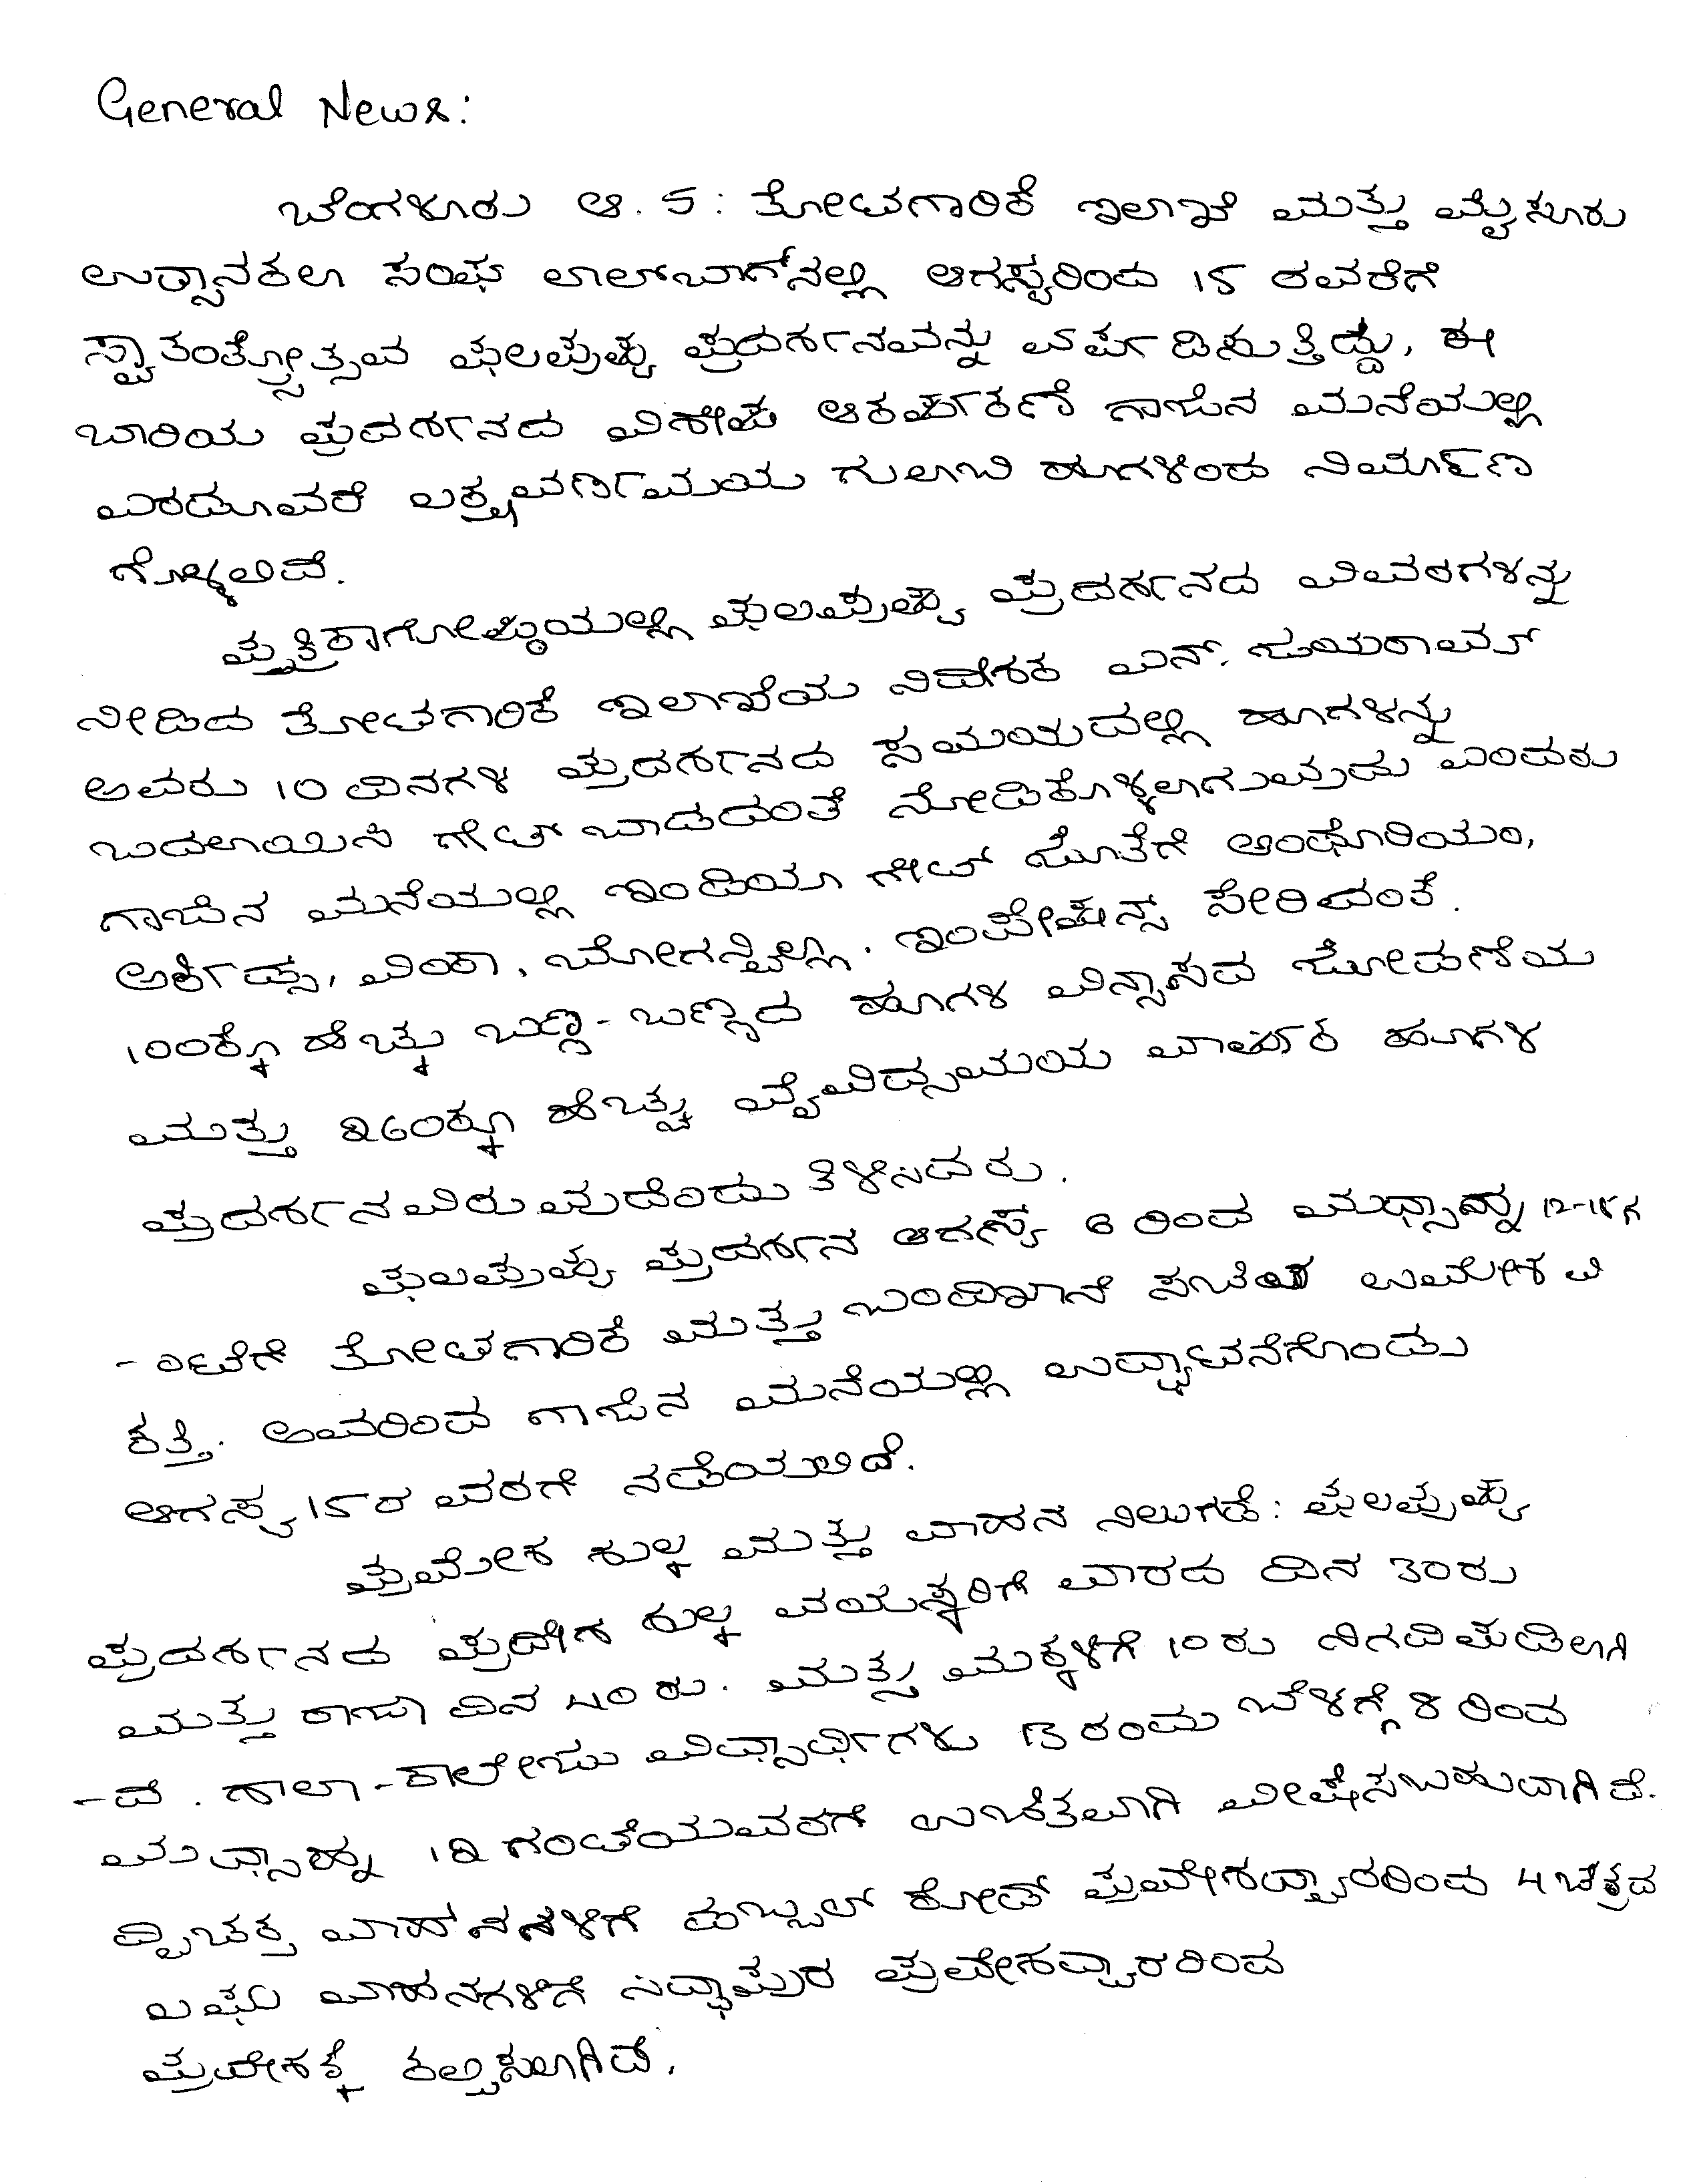 General News:
ಬೆಂಗಳೂರು ಆ. 5: ತೋಟಗಾರಿಕೆ ಇಲಾಖೆ ಮತ್ತು ಮೈಸೂರು
ಉದ್ಯಾನಕಲಾ ಸಂಘ ಲಾಲ್‌ಬಾಗ್‌ನಲ್ಲಿ ಆಗಸ್ಟರಿಂದ 15 ರವರೆಗೆ
ಸ್ವಾತಂತ್ರ್ಯೋತ್ಸವ ಫಲಪುಷ್ಪ ಪ್ರದರ್ಶನವನ್ನು ಏರ್ಪಡಿಸುತ್ತಿದ್ದು, ಈ
ಬಾರಿಯ ಪ್ರದರ್ಶನದ ವಿಶೇಷ ಆಕರ್ಷಕಣೆ ಗಾಜಿನ ಮನೆಯಲ್ಲಿ
ಎರಡೂವರೆ ಲಕ್ಷ ವರ್ಣಮಯ ಗುಲಾಬಿ ಹೂಗಳಿಂದ ನಿರ್ಮಾಣ
ಗೊಳ್ಳಲಿದೆ.
ಪತ್ರಿಕಾಗೋಷ್ಠಿಯಲ್ಲಿ ಫಲಪುಷ್ಪ ಪ್ರದರ್ಶನದ ವಿವರಗಳನ್ನು
ನೀಡಿದ ತೋಟಗಾರಿಕೆ ಇಲಾಖೆಯ ನಿರ್ದೇಶಕ ಎನ್. ಜಯರಾಮ್
ಅವರು 10 ದಿನಗಳ ಪ್ರದರ್ಶನದ ಸಮಯದಲ್ಲಿ ಹೂಗಳನ್ನು
ಬದಲಾಯಿಸಿ ಗೇಟ್ ಬಾಡದಂತೆ ನೋಡಿಕೊಳ್ಳಲಾಗುವುದು ಎಂದರು
ಗಾಜಿನ ಮನೆಯಲ್ಲಿ ಇಂಡಿಯಾ ಗೇಟ್ ಜೊತೆಗೆ ಆಂಥೋರಿಯಂ,
ಆರ್ಕಿಡ್ಸ, ವಿಂಕಾ, ಬೋಗನ್ವಿಲ್ಲಾ. ಇಂಪೇಷನ್ಸ್ ಸೇರಿದಂತೆ.
100ಕ್ಕೂ ಹೆಚ್ಚು ಬಣ್ಣ-ಬಣ್ಣದ ಹೂಗಳ ವಿನ್ಯಾಸದ ಜೋಡಣೆಯ
ಮತ್ತು 260ಕ್ಕೂ ಹೆಚ್ಚು ವೈವಿಧ್ಯಮಯ ವಾರ್ಷಿಕ ಹೂಗಳ
ಪ್ರದರ್ಶನವಿರುವುದೆಂದು ತಿಳಿಸಿದರು.
ಫಲಪುಷ್ಪ ಪ್ರದರ್ಶನ ಆಗಸ್ಟ್ 6 ರಿಂದ ಮಧ್ಯಾಹ್ನ 12-15ಗ
-ಂಟೆಗೆ ತೋಟಗಾರಿಕೆ ಮತ್ತು ಬಂದಿಖಾನೆ ಸಚಿವ ಉಮೇಶ ವಿ
ಕತ್ತಿ. ಅವರಿಂದ ಗಾಜಿನ ಮನೆಯಲ್ಲಿ ಉದ್ಘಾಟನೆಗೊಂಡು
ಆಗಸ್ಟ 15ರ ವರಗೆ ನಡೆಯಲಿದೆ.
ಪ್ರವೇಶ ಶುಲ್ಕ ಮತ್ತು ವಾಹನ ನಿಲುಗಡೆ: ಫಲಪುಷ್ಪ
ಪ್ರದರ್ಶನದ ಪ್ರವೇಶ ಶುಲ್ಕ ವಯಸ್ಕರಿಗೆ ವಾರದ ದಿನ 30ರು
ಮತ್ತು ರಾಜಾ ದಿನ 40 ರು. ಮತ್ತು ಮಕ್ಕಳಿಗೆ 10 ರು ನಿಗದಿಪಡಿಲಾಗಿ
-ದೆ. ಶಾಲಾ-ಕಾಲೇಜು ವಿದ್ಯಾರ್ಥಿಗಳು 13 ರಂದು ಬೆಳಗ್ಗೆ 8 ರಿಂದ
ಮಧ್ಯಾಹ್ನ 12 ಗಂಟೆಯವರಗೆ ಉಚಿತವಾಗಿ ವೀಕ್ಷಿಸಬಹುದಾಗಿದೆ.
ದ್ವಿಚಕ್ರ ವಾಹನಗಳಿಗೆ ಡಬ್ಬಲ್ ರೋಡ್ ಪ್ರವೇಶದ್ವಾರರಿಂದ 4 ಚಕ್ರದ
ಲಘು ವಾಹನಗಳಿಗೆ ಸಿದ್ಧಾಪುರ ಪ್ರವೇಶದ್ವಾರರಿಂದ
ಪ್ರವೇಶಕ್ಕೆ ಕಲ್ಪಿಸಲಾಗಿದೆ.